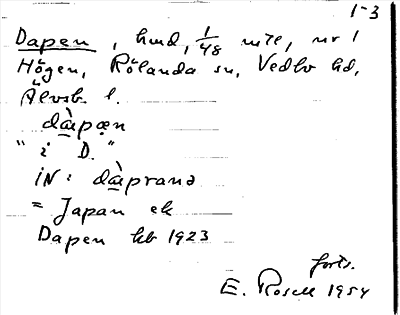 1-3
Dapen, hmd, 1/48 mtl, nr 1
Högen, Rölanda sn, Vedbo hd,
Älvsb. l.
dàpæn
"i D."
iN: dàpranə
= Japan ek
Dapen kb 1923
forts.
E. Rosell 1954